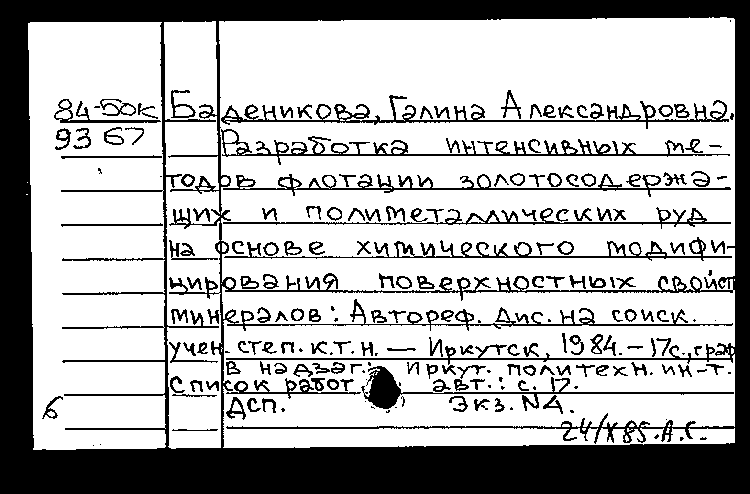 84-5ок Баденикова, Галина Александровна.
9367 Разработка интенсивных ме-
тодов флотации золотосодержа-
щих и полиметаллических руд
на основе химического модифи-
цирования поверхностных свойст
минералов: Автореф. дис. на соиск.
учен. степ. к.т.н. — Иркутск, 1984. – 17с., граф
В надзаг.: Иркут. политехн. ин-т.
Список работ авт.: с. 17.
б ДСП. Экз. N4.
24/X 85. А.С.